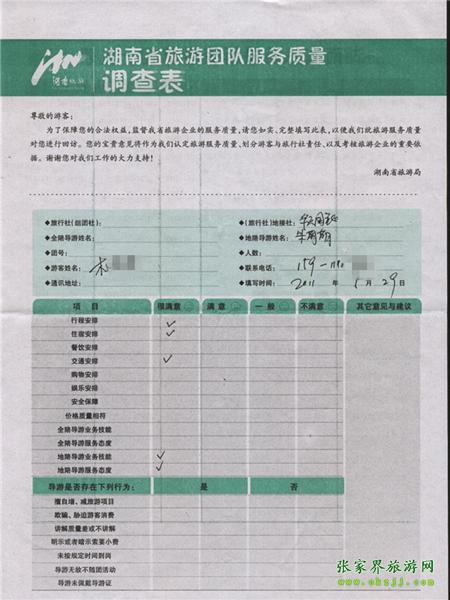 湖南旅游
湖南省旅游团队服务质量
调查表
尊敬的游客：
为了保障您的合法权益，监督我省旅游企业的服务质量，请您如实、完整填写此表，以便我们就旅游服务质量
对您进行回访。您的宝贵意见将作为我们认定旅游服务质量、划分游客与旅行社责任、以及考核旅游企业的重要依
据。谢谢您对我们工作的大力支持！
湖南省旅游局
◆旅行社(组团社)： ◆(旅行社)地接社：
◆全陪导游姓名： ◆地陪导游姓名：
◆团号： ◆人数：
◆游客姓名： ◆联系电话： 159-
◆通讯地址： ◆填写时间： 2011 年 5月 29日
项 目 很满意 满 意 一 般 不满意 其它意见与建议
行程安排 ✓
住宿安排 ✓
餐饮安排
交通安排 ✓
购物安排
娱乐安排
安全保障
价格质量相符
全陪导游业务技能
全陪导游服务态度
地陪导游业务技能 ✓
地陪导游服务态度 ✓
导游是否存在下列行为： 是 否
擅自增、减旅游项目
欺骗、胁迫游客消费
讲解质量差或不讲解
明示或者暗示索要小费
未按规定时间到岗
导游无故不随团活动
导游未佩戴导游证
张家界旅游网
www.okzjj.com